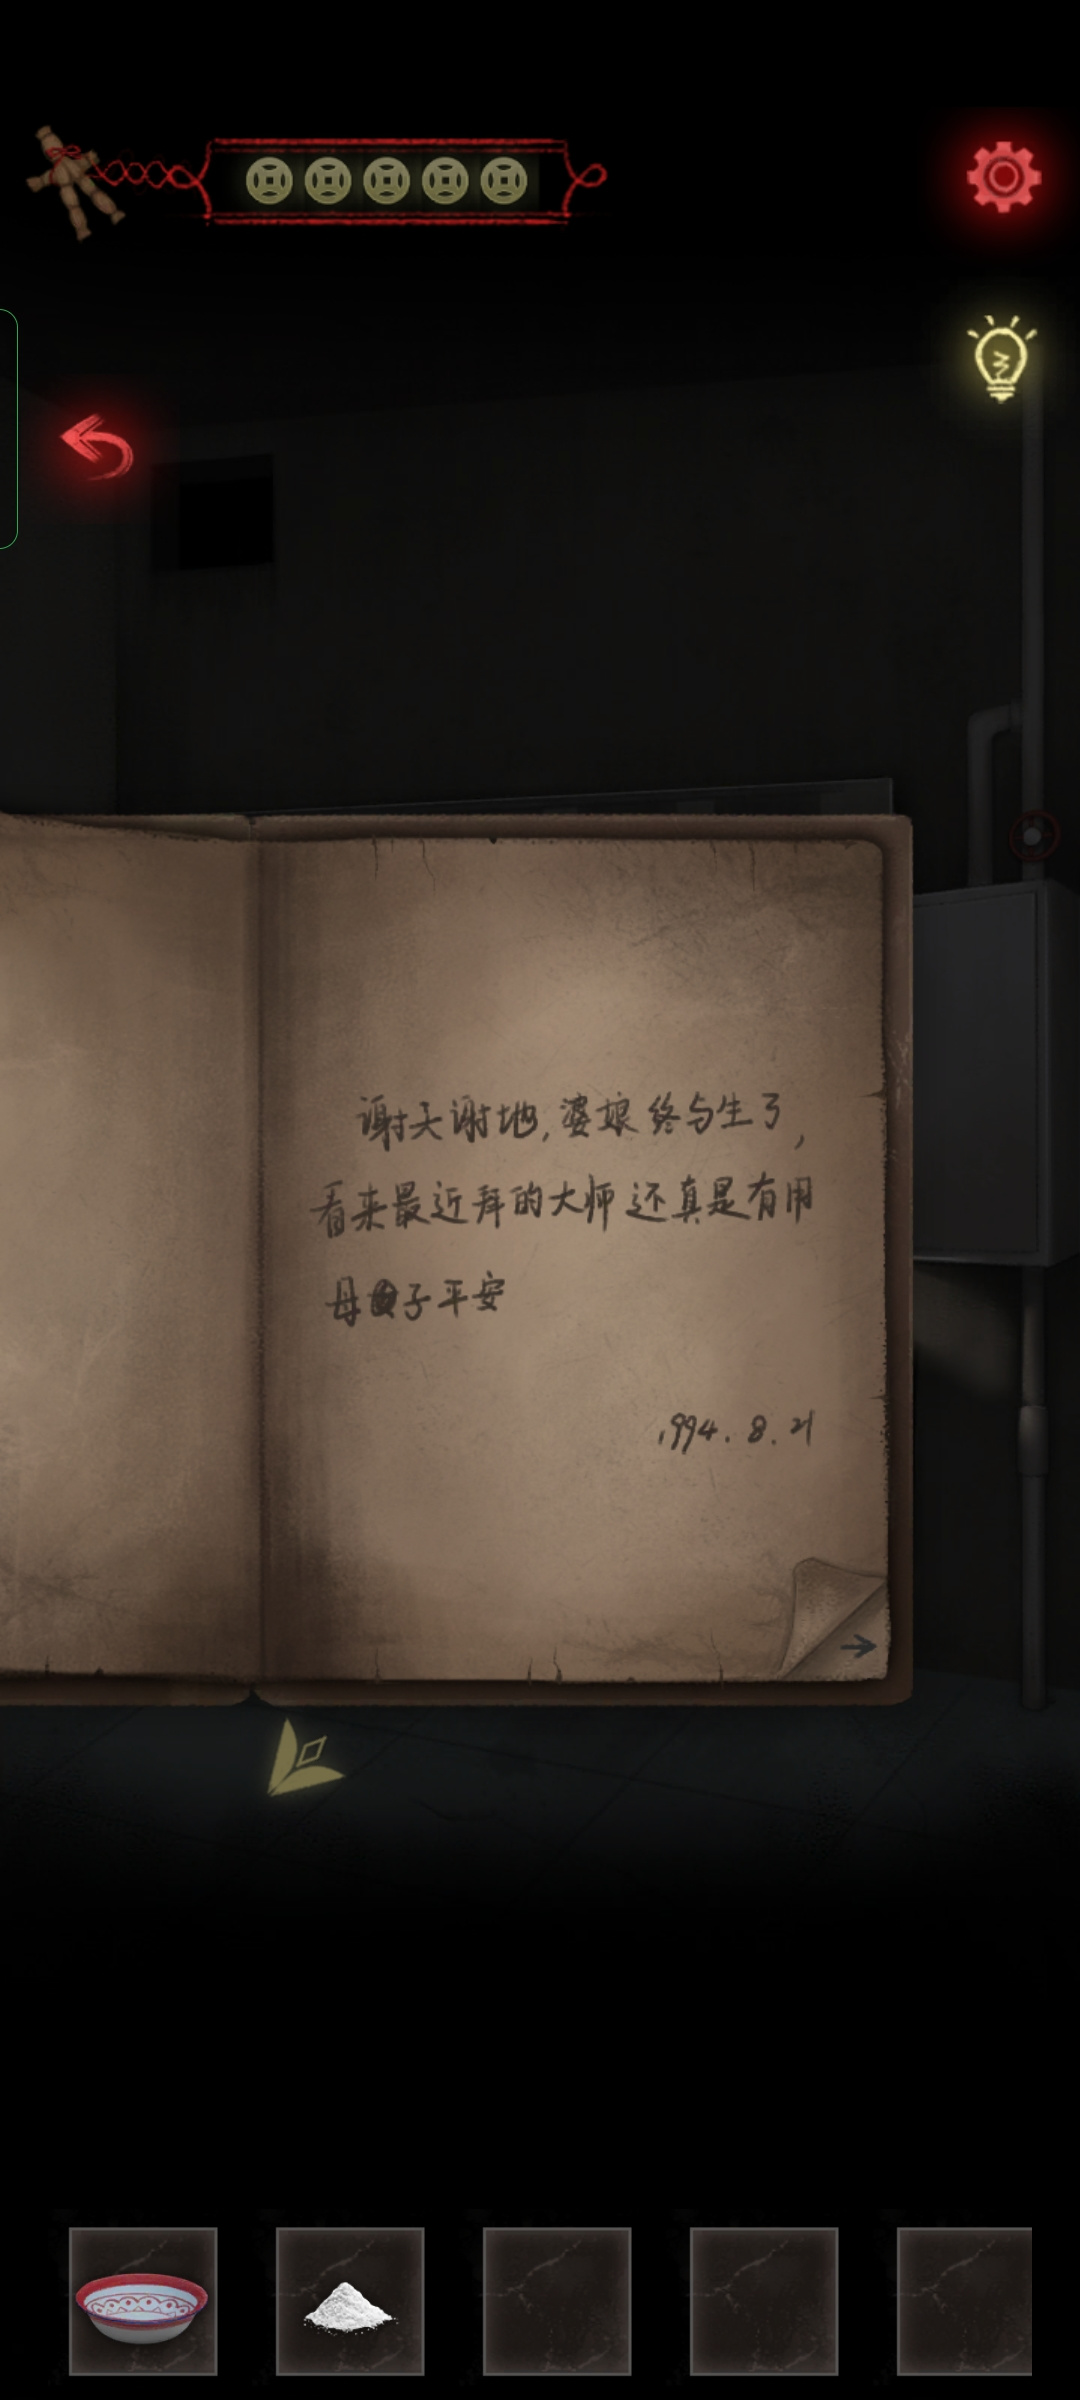 谢天谢地,婆娘终与生了,
看来最近拜的大师还真是有用
母子平安
1994.8.21